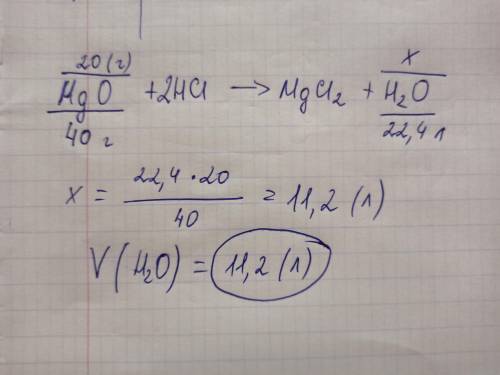 20(г) x
MgO + 2HCl → MgCl₂ + H₂O
40 г 22,4 л
x = 22,4 · 20 / 40 = 11,2 (л)
V(H₂O) = 11,2 (л)